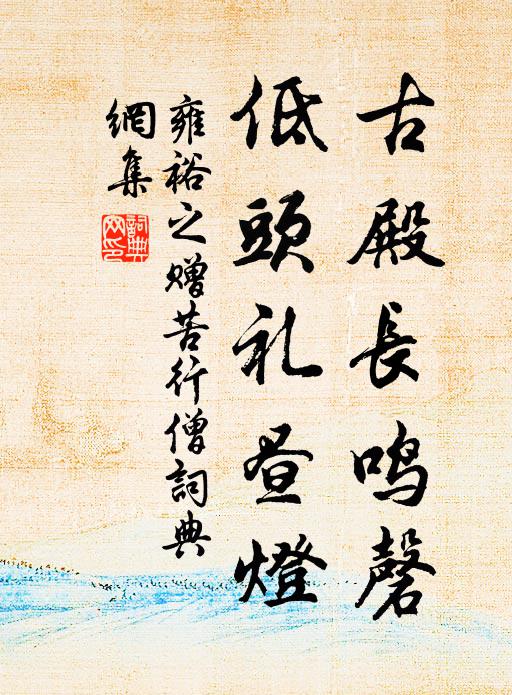 古殿長鸣磬
低頭礼昼燈
雍裕之赠苦行僧詞典
網集
詞典
网印